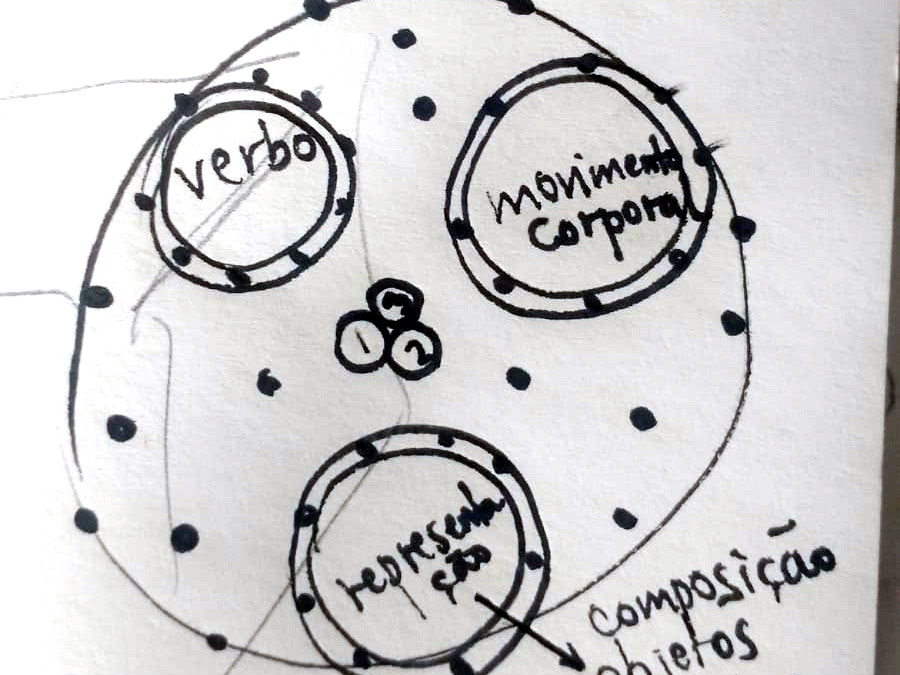 verbo
movimento
corporal
3
1 2
representa
ção
composição
objetos